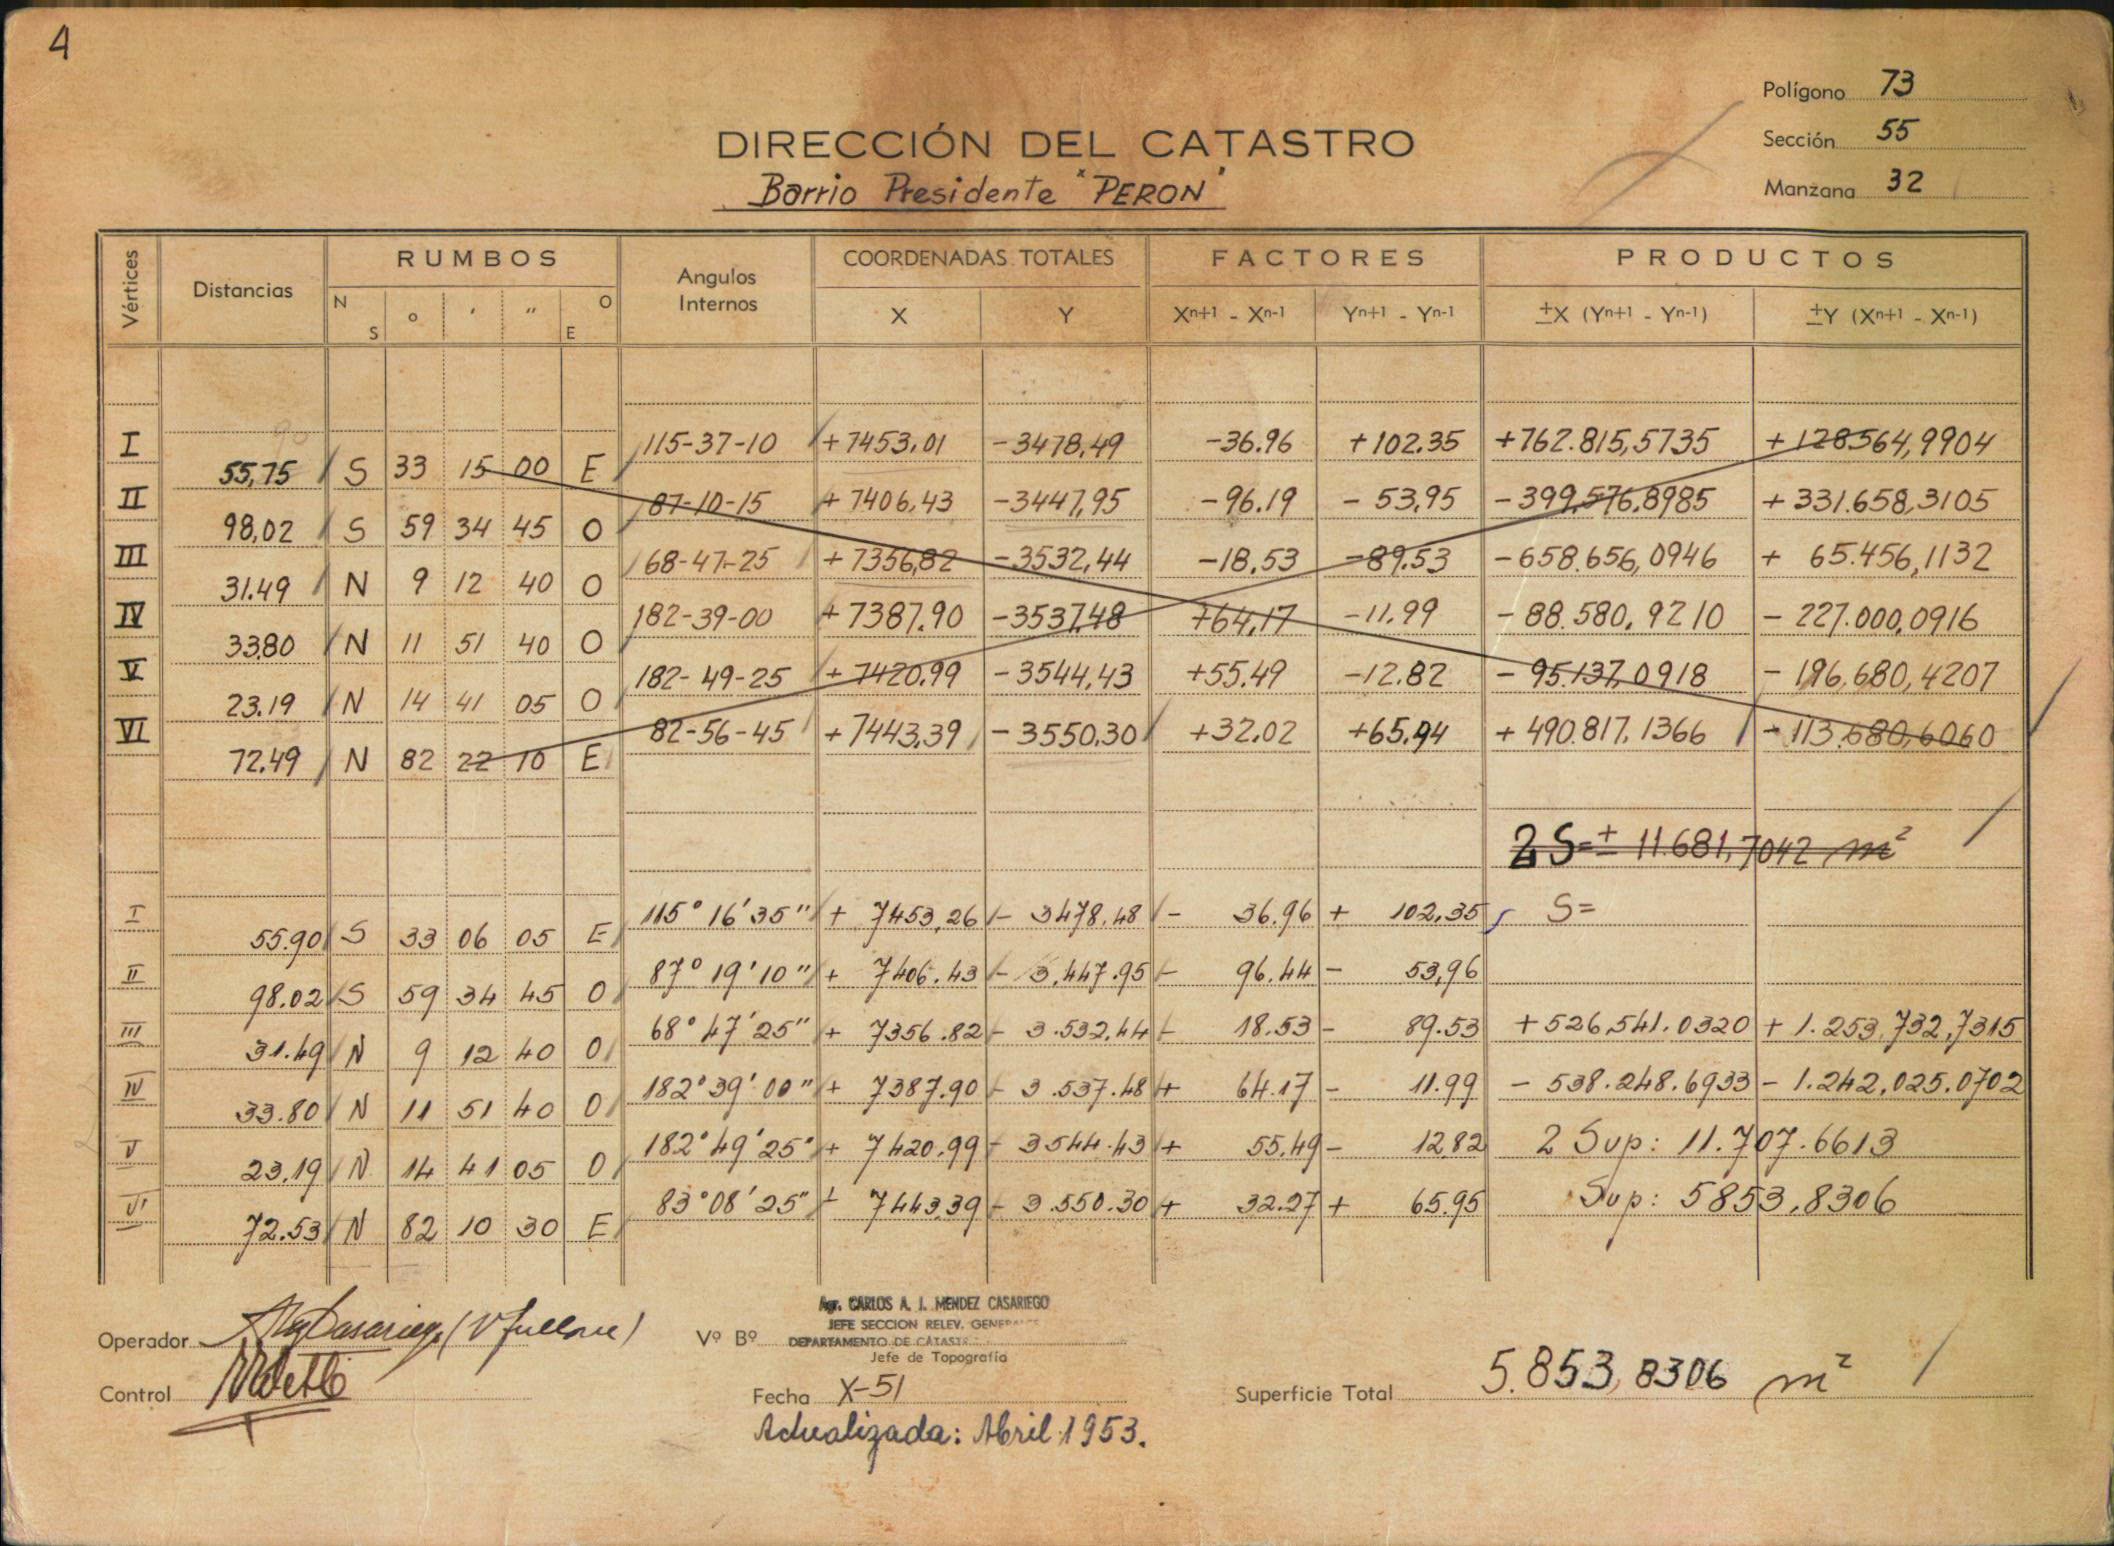 4
Polígono 73
Sección 55
Manzana 32
DIRECCIÓN DEL CATASTRO
Barrio Presidente "PERON"
Vértices Distancias RUMBOS Angulos Internos COORDENADAS TOTALES FACTORES PRODUCTOS
N S o ' " O E X Y Xn+1 - Xn-1 Yn+1 - Yn-1 ±X (Yn+1 - Yn-1) ±Y (Xn+1 - Xn-1)
I 115-37-10 +7453,01 -3478,49 -36.96 +102.35 +762.815,5735 +128564,9904
55,75 S 33 15 00 E
II 87-10-15 +7406,43 -3447,95 -96.19 -53,95 -399.576,8985 +331.658,3105
98,02 S 59 34 45 O
III 68-47-25 +7356,82 -3532,44 -18,53 -89.53 -658.656,0946 + 65.456,1132
31.49 N 9 12 40 O
IV 182-39-00 +7387.90 -3537,48 +64,17 -11.99 -88.580,9210 -227.000,0916
33.80 N 11 51 40 O
V 182-49-25 +7420.99 -3544,43 +55.49 -12.82 -95.137,0918 -196,680,4207
23.19 N 14 41 05 O
VI 82-56-45 +7443,39 -3550,30 +32.02 +65.94 +490.817,1366 -113.680,6060
72.49 N 82 22 10 E
2S=± 11.681,7042 m²
I 115° 16' 35" + 7453,26 - 3478.48 - 36.96 + 102,35 S=
55.90 S 33 06 05 E
II 87° 19' 10" + 7406.43 - 3,447.95 - 96.44 - 53,96
98.02 S 59 34 45 O
III 68° 47' 25" + 7356.82 - 3.532,44 - 18.53 - 89.53 +526,541.0320 +1.253,732,7315
31.49 N 9 12 40 O
IV 182° 39' 00" + 7387.90 - 3.537.48 + 64.17 - 11.99 - 538.248.6933 - 1.242,025.0702
33.80 N 11 51 40 O
V 182° 49' 25" + 7420.99 - 3544.43 + 55,49 - 12,82 2 Sup: 11.707.6613
23,19 N 14 41 05 O
VI 83° 08' 25" + 7443.39 - 3.550.30 + 32.27 + 65.95 Sup: 5853,8306
72.53 N 82 10 30 E
Agr. CARLOS A. I. MENDEZ CASARIEGO
JEFE SECCION RELEV. GENERALES
Operador Vº Bº DEPARTAMENTO DE CATAST
Jefe de Topografía
Control Fecha X-51 Superficie Total 5.853,8306 m²
Actualizada: Abril 1953.